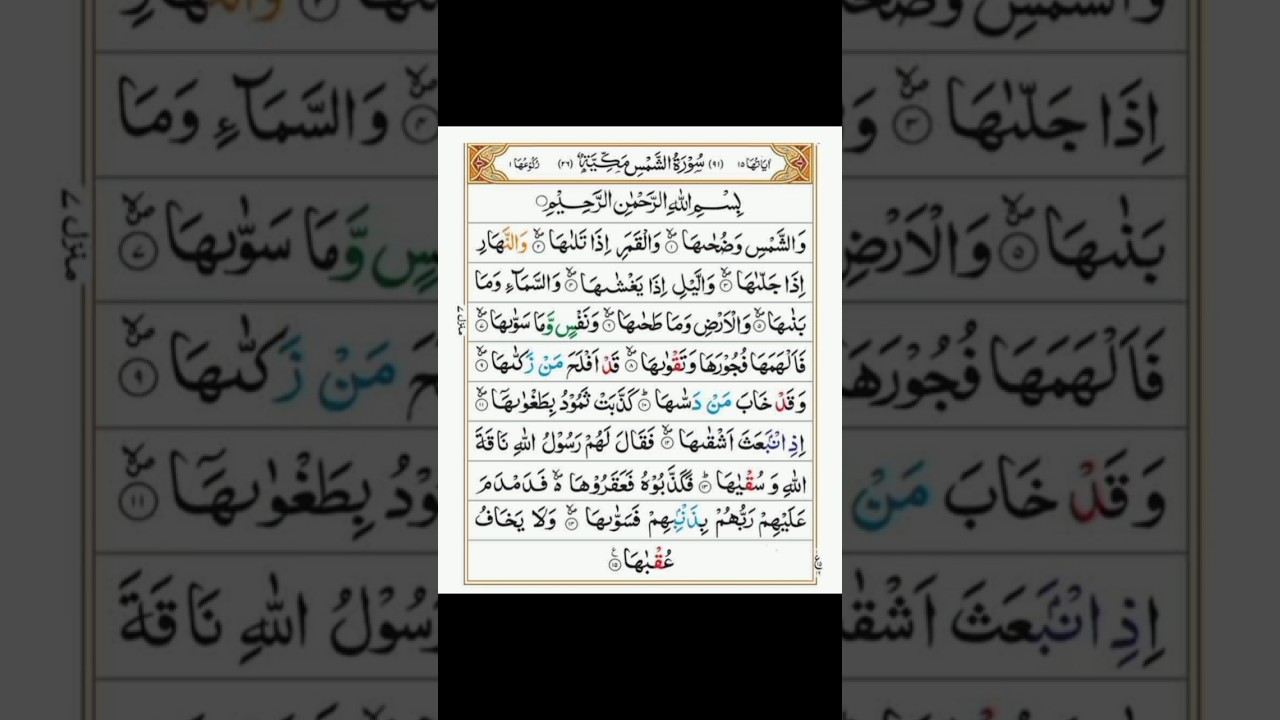 اٰيَاتُهَا ١٥ (٩١) سُوْرَةُ الشَّمْسِ مَكِّيَّةٌ (٢٦) رُكُوْعُهَا ١
بِسْمِ اللّٰهِ الرَّحْمٰنِ الرَّحِيْمِ
وَالشَّمْسِ وَضُحٰىهَا ۙ۝١ وَالْقَمَرِ اِذَا تَلٰىهَا ۙ۝٢ وَالنَّهَارِ
اِذَا جَلّٰىهَا ۙ۝٣ وَالَّيْلِ اِذَا يَغْشٰىهَا ۙ۝٤ وَالسَّمَآءِ وَمَا
بَنٰىهَا ۙ۝٥ وَالْاَرْضِ وَمَا طَحٰىهَا ۙ۝٦ وَنَفْسٍ وَّمَا سَوّٰىهَا ۙ۝٧
فَاَلْهَمَهَا فُجُوْرَهَا وَتَقْوٰىهَا ۙ۝٨ قَدْ اَفْلَحَ مَنْ زَكّٰىهَا ۙ۝٩
وَقَدْ خَابَ مَنْ دَسّٰىهَا ؕ۝١٠ كَذَّبَتْ ثَمُوْدُ بِطَغْوٰىهَاۤ ۙ۝١١
اِذِ انْۢبَعَثَ اَشْقٰىهَا ۙ۝١٢ فَقَالَ لَهُمْ رَسُوْلُ اللّٰهِ نَاقَةَ
اللّٰهِ وَسُقْيٰهَا ؕ۝١٣ فَكَذَّبُوْهُ فَعَقَرُوْهَا ۙ۬ فَدَمْدَمَ
عَلَيْهِمْ رَبُّهُمْ بِذَنْۢبِهِمْ فَسَوّٰىهَا ۙ۝١٤ وَلَا يَخَافُ
عُقْبٰهَا ۝١٥
منزل ٧